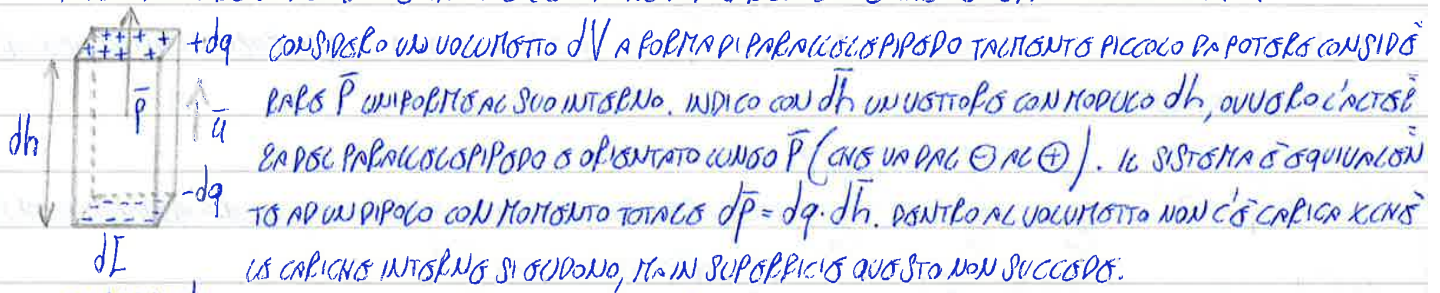 +dq CONSIDERO UN VOLUMETTO dV A FORMA DI PARALLELEPIPEDO TALMENTE PICCOLO DA POTERE CONSIDE
RARE P̄ UNIFORME AL SUO INTERNO. INDICO CON d̄h UN VETTORE CON MODULO dh, OVVERO L'ALTEZ
ZA DEL PARALLELEPIPEDO E ORIENTATO LUNGO P̄ (CHE VA DAL ⊖ AL ⊕). IL SISTEMA È EQUIVALEN
TE AD UN DIPOLO CON MOMENTO TOTALE dp̄ = dq · d̄h. DENTRO AL VOLUMETTO NON C'È CARICA XCHÈ
LE CARICHE INTERNE SI ELIDONO, MA IN SUPERFICIE QUESTO NON SUCCEDE.
P̄
ū
dh
-dq
dΣ